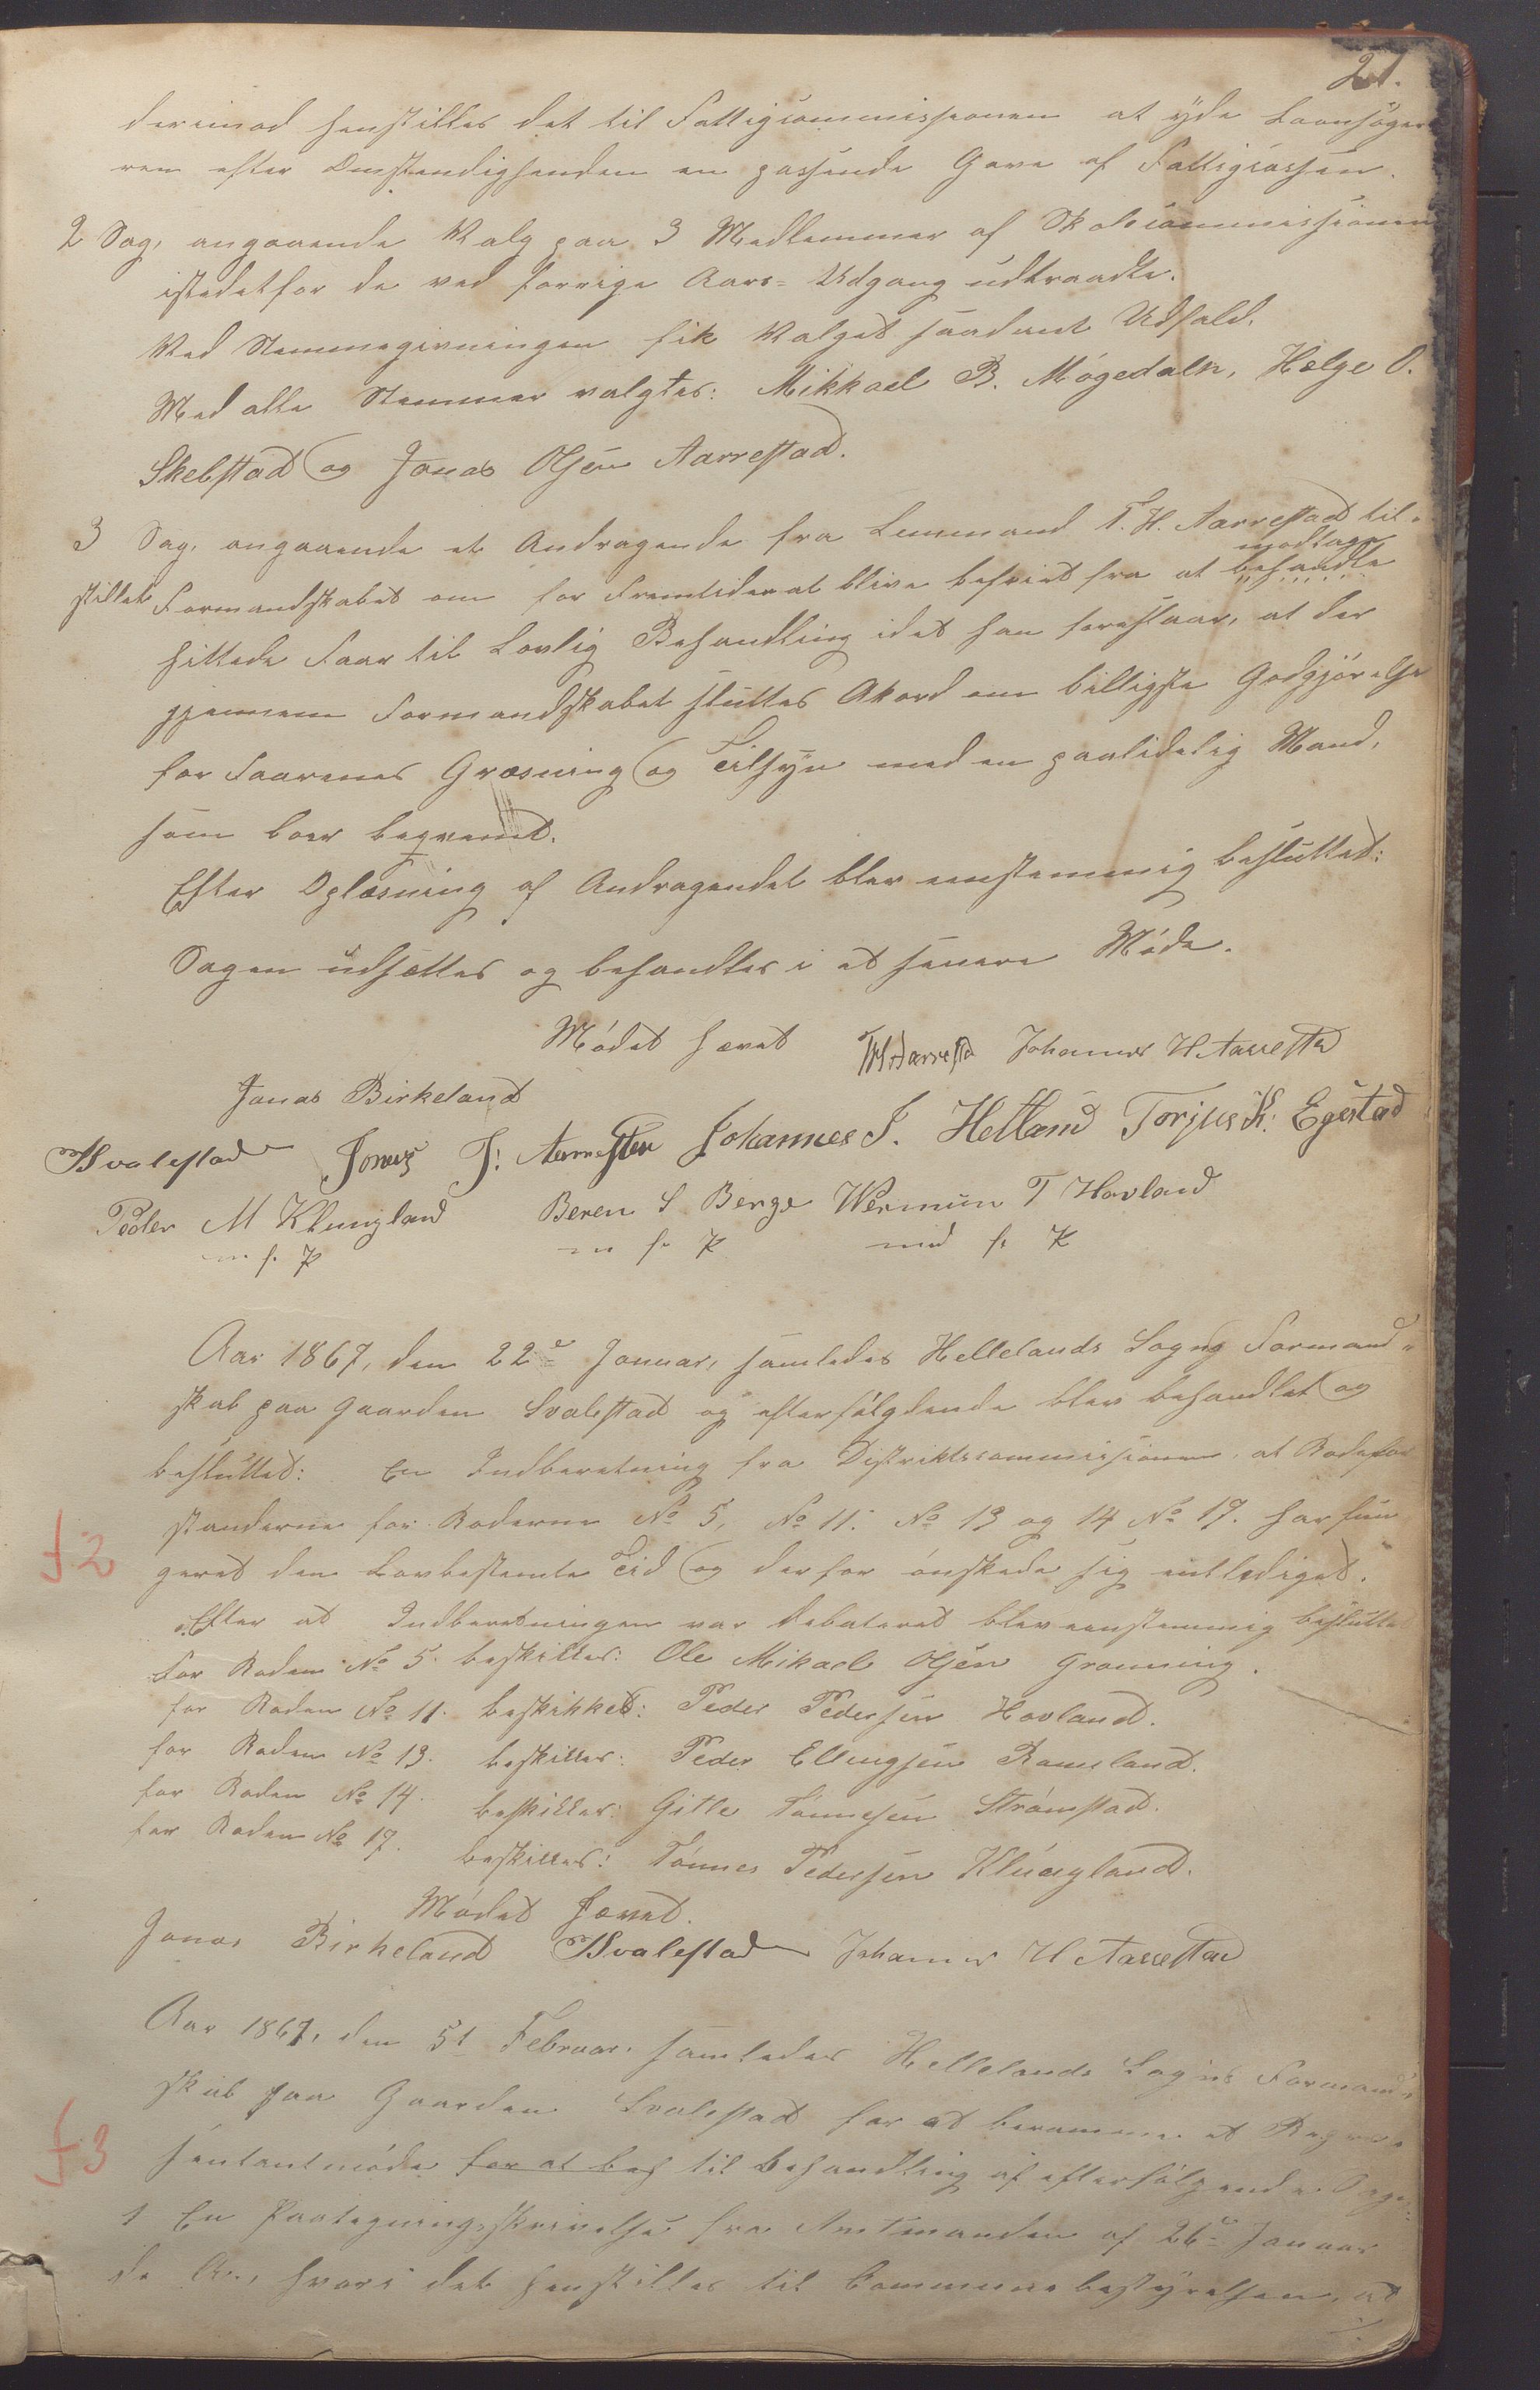 21.
derimod henstilles det til Fattigcommissionen at yde Laansøge-
ren efter Omstendighenden en passende Gave af Fattigcassen.
2 Sag, angaaende Valg paa 3 Medlemmer af Skolecommissionen
istedetfor de ved forrige Aars-Udgang udtraadte.
Ved Stemmegivningen fik Valget saadant Udfald.
Med alle Stemmer valgtes: Mikkael B. Møgedaln, Helge O.
Skelstad og Jonas Olsen Aarrestad.
3 Sag, angaaende et Andragende fra Lensmand T. H. Aarrestad til-
modtage
stillet Formandskabet om for Fremtiden at blive befriet fra at behandle
hittede Faar til Lovlig Behandling idet han foreslaar, at der
gjennem Formandskabet sluttes Akord om billigste Godgjørelse
for Faarenes Græsning og Tilsyn med en paalidelig Mand,
som boer beqvemt.
Efter Oplæsning af Andragendet blev eenstemmig besluttet:
Sagen udsættes og behandles i et senere Møde.
Mødet hævet THAarrestad Johannes H Aarrestad
Jonas Birkeland
Svalestad Jonas J: Aarrestad Johannes J. Helland Torjus K: Egestad
Peder M Klungland Beren S Berge Wermun T Hovland
m f. P m f. P med f. P
Aar 1867, den 22de Januar, samledes Hellelands Sogns Formand-
skab paa Gaarden Svalestad og efterfølgdende blev behandlet og
besluttet: En Indberetning fra Distriktscommissionen, at Rodefor
standerne for Roderne No 5, No 11. No 13 og 14 No 17. har fun
f 2
geret den Lovbestemte Tid og derfor ønskede sig entlediget.
Efter at Indberetningen var debateret blev eenstemmig beslutte
For Roden No 5. beskikkes: Ole Mikael Olsen Grønning.
for Roden No 11. beskikket: Peder Pedersen Hovland.
for Roden No 13. beskikkes: Peder Ellingsen Ramsland.
for Roden No 14. beskikkes: Gitle Tønnesen Strømstad.
for Roden No 17. beskikkes: Tønnes Pedersen Klungland.
Mødet hævet.
Jonas Birkeland Svalestad Johannes H Aarrestad
Aar 1867, den 51 Februar, samledes Hellelands Sogns Formand-
skab paa Gaarden Svalestad for at beramme et Repræ-
f 3
sentantmøde for at beh til Behandling af efterfølgende Sager:
1 En Paategningsskrivelse fra Amtmanden af 26de Januar
de A., hvori det henstilles til Communebestyrelsen, at